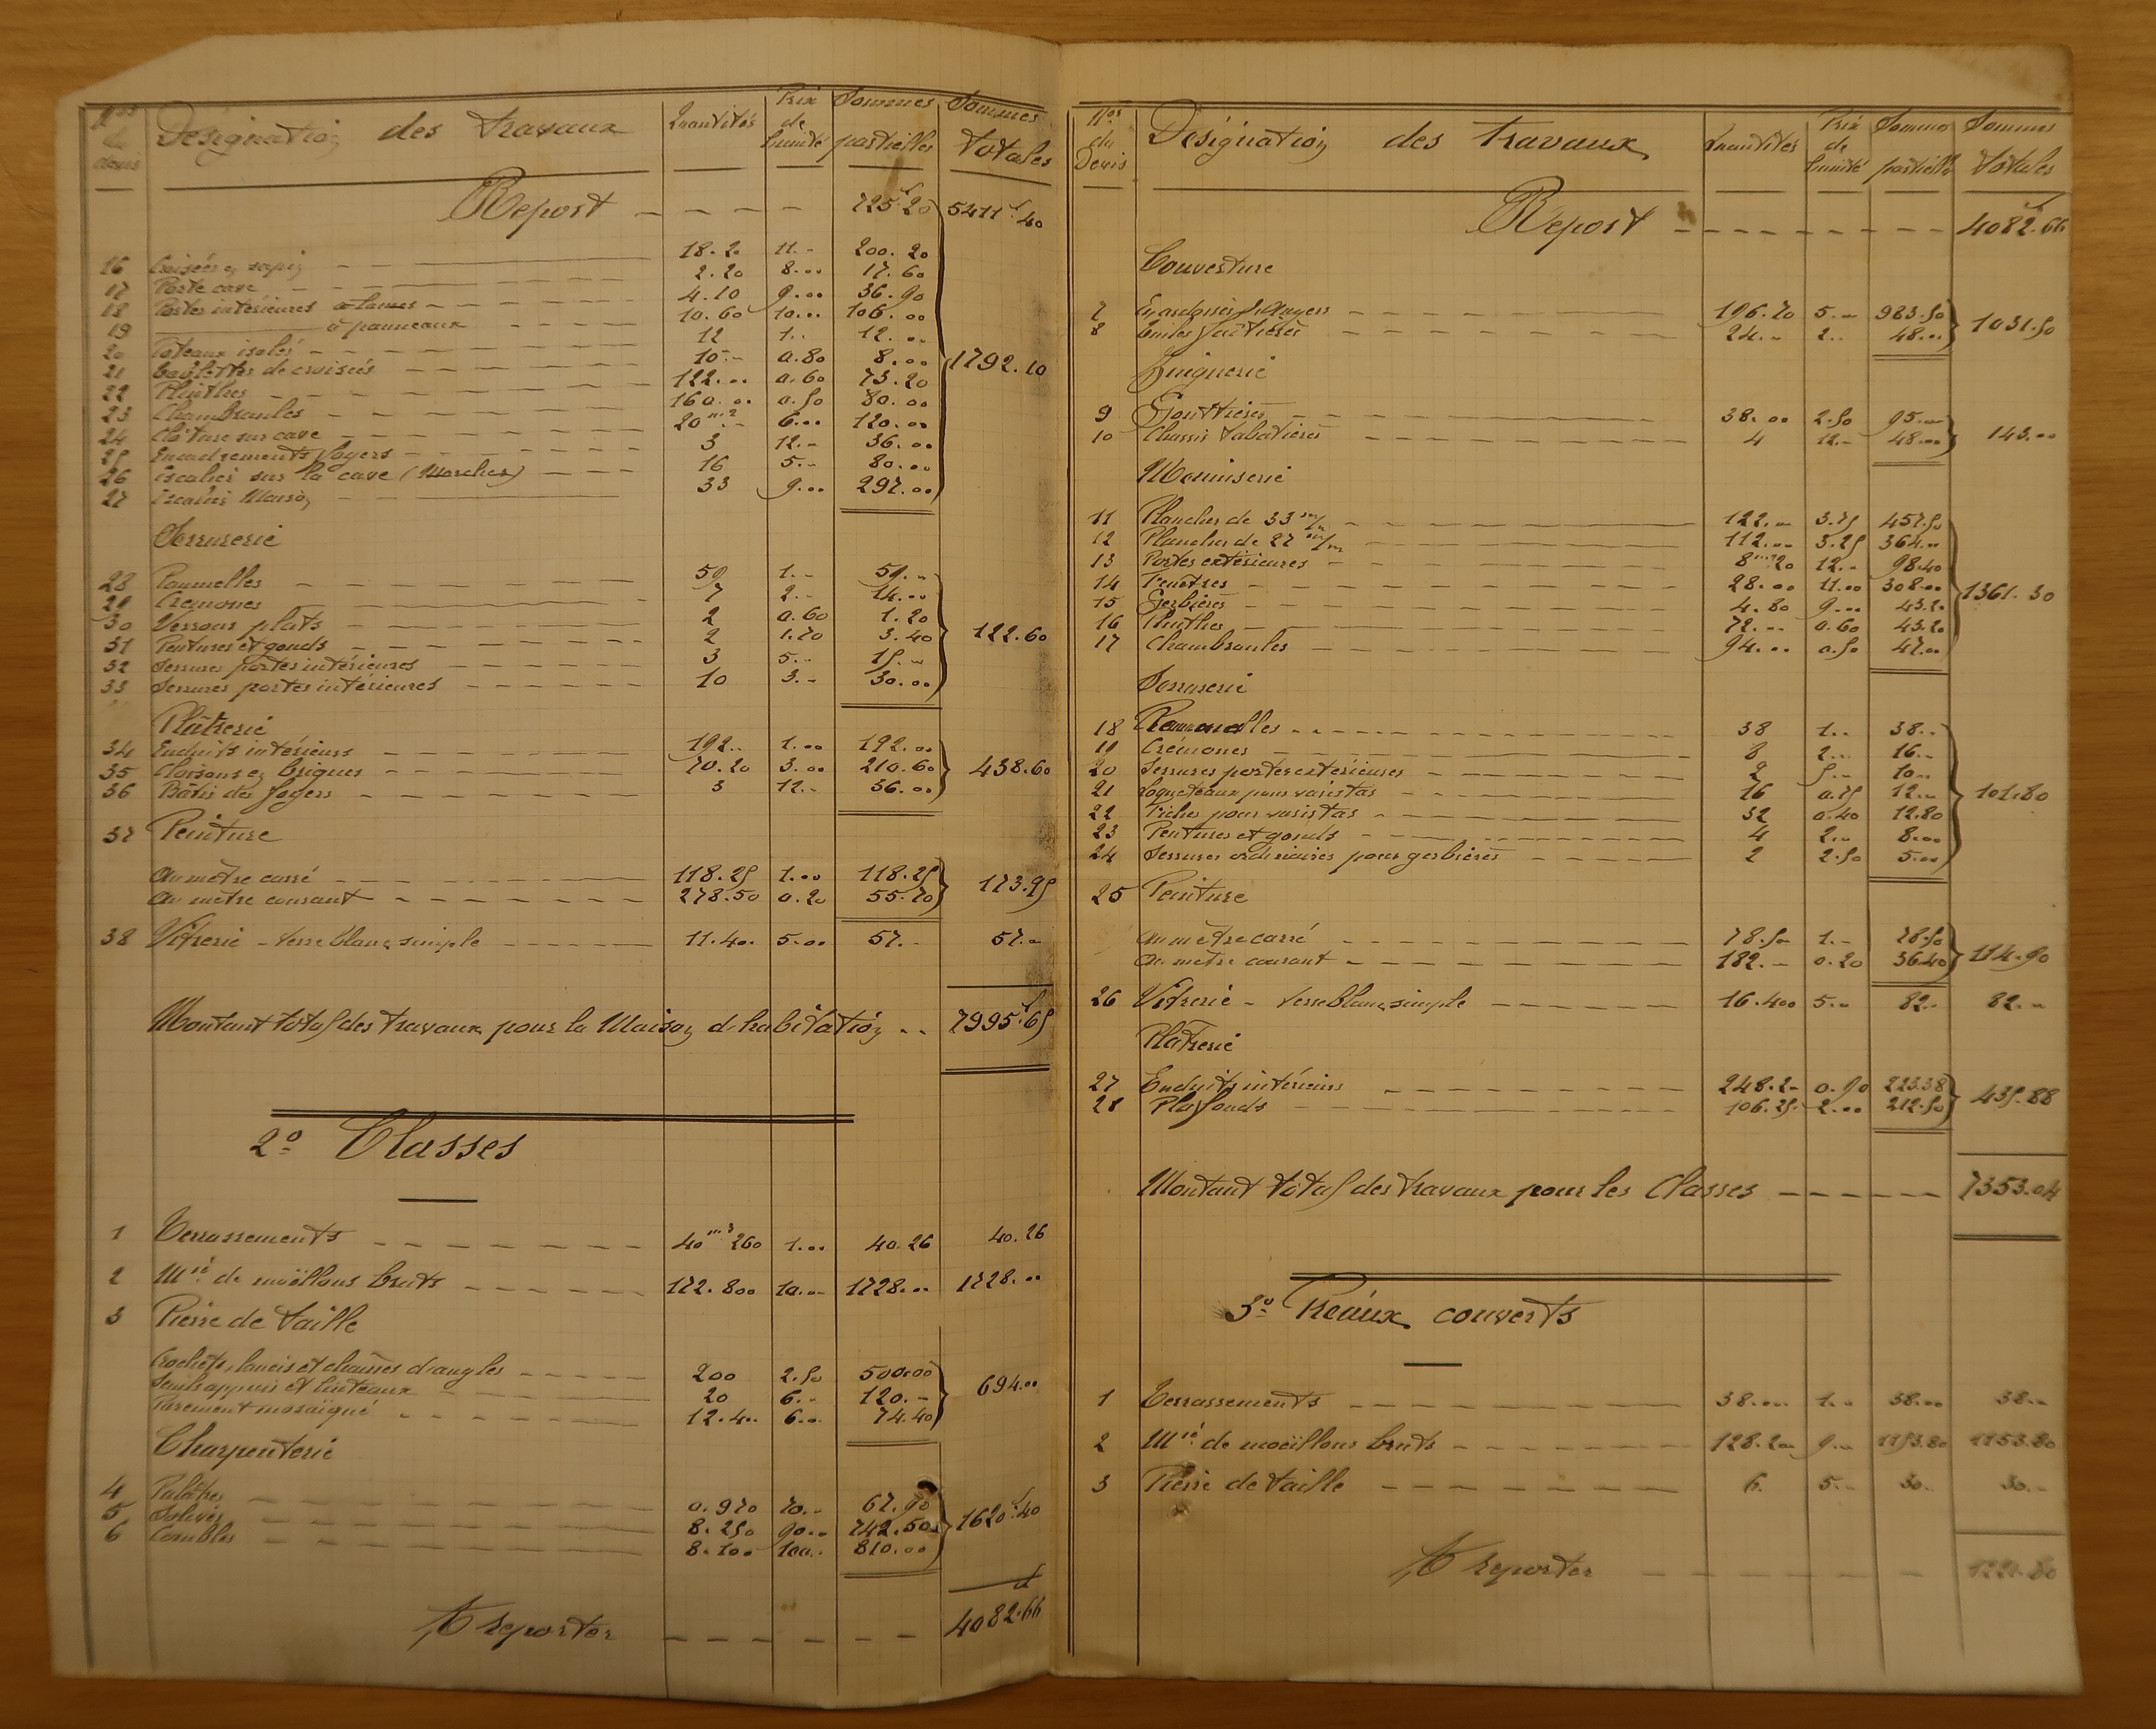 Nos du devis Désignation des travaux Quantités Prix de l'unité Sommes partielles Sommes totales
Report 725.20 5411f.40
16 Croisées en sapin 18.20 11.- 200.20
17 Porte cave 2.20 8... 17.60
18 Portes intérieures à lames 4.10 9... 36.90
19 à panneaux 10.60 10... 106.00
20 Poteaux isolés 12 1.. 12.00
21 de croisées 10.- 0.80 8.00
22 Plinthes 122... 0.60 73.20
23 Chambranles 160... 0.50 80.00
24 Clôture sur cave 20m2.- 6... 120.00
25 Encadrements foyers 3 12.- 36.00
26 Escalier sur la cave (Marches) 16 5.- 80.00
27 Escalier Maison 33 9... 297.00
1792.10
Serrurerie
28 Paumelles 59 1.- 59.-
29 Crémones 7 2.- 14.00
30 Verrous plats 2 0.60 1.20
31 Pentures et gonds 2 1.70 3.40
32 Serrures portes intérieures 3 5.- 15.-
33 Serrures portes intérieures 10 3.- 30.00
122.60
Plâtrerie
34 Enduits intérieurs 192.. 1.00 192.00
35 Cloisons en briques 70.20 3.00 210.60
36 Bâtis des foyers 3 12.- 36.00
438.60
37 Peinture
au mètre carré 118.25 1.00 118.25
au mètre courant 278.50 0.20 55.70
173.95
38 Vitrerie - verre blanc simple 11.40. 5.00 57.- 57.-
Montant total des travaux pour la Maison d'habitation .. 7995f.65
2o Classes
1 Terrassements 40m3260 1.00 40.26 40.26
2 Mrie de moëllons bruts 172.800 10.- 1728... 1728...
3 Pierre de taille
Crochets, lancis et chaînes d'angles 200 2.50 500.00
Seuils appuis et linteaux 20 6.- 120.-
Parement mosaïqué 12.4.. 6... 74.40
694.00
Charpenterie
4 Palâtres 0.970 70.- 67.90
5 Solives 8.250 90.- 742.50
6 Combles 8.100 100.. 810.00
1620f.40
A reporter 4082.66
Nos du Devis Désignation des travaux Quantités Prix de l'unité Sommes partielles Sommes totales
Report 4082.66
Couverture
7 En ardoises d'Angers 196.70 5.- 983.50
8 Tuiles faîtières 24.- 2.. 48...
1031.50
Zinguerie
9 Gouttières 38.00 2.50 95.-
10 Chassis tabatières 4 12.- 48.00
143.00
Menuiserie
11 Plancher de 33 m/m 122.- 3.75 457.50
12 Plancher de 27 m/m 112... 3.25 364.-
13 Portes extérieures 8m220 12.. 98.40
14 Fenêtres 28.00 11.00 308.00
15 Gerbières 4.80 9... 43.20
16 Plinthes 72.- 0.60 43.20
17 Chambranles 94... 0.50 47.00
1361.30
Serrurerie
18 Paumelles 38 1.. 38..
19 Crémones 8 2... 16..
20 Serrures portes extérieures 2 5.- 10..
21 Loqueteaux pour vasistas 16 0.75 12.-
22 Fiches pour vasistas 32 0.40 12.80
23 Pentures et gonds 4 2.. 8.00
24 Serrures ordinaires pour gerbières 2 2.50 5.00
101.80
25 Peinture
au mètre carré 78.50 1.- 78.50
au mètre courant 182.- 0.20 36.40
114.90
26 Vitrerie - verre blanc simple 16.400 5.- 82.. 82.-
Plâtrerie
27 Enduits intérieurs 248.2- 0.90 223.38
28 Plafonds 106.25. 2.00 212.50
435.88
Montant total des travaux pour les Classes 7353.04
3o Préaux couverts
1 Terrassements 38.... 1.. 38.00 38.-
2 Mrie de moëllons bruts 128.200 9.- 1153.80 1153.80
3 Pierre de taille 6 5.- 30.. 30.-
A reporter 1221.80